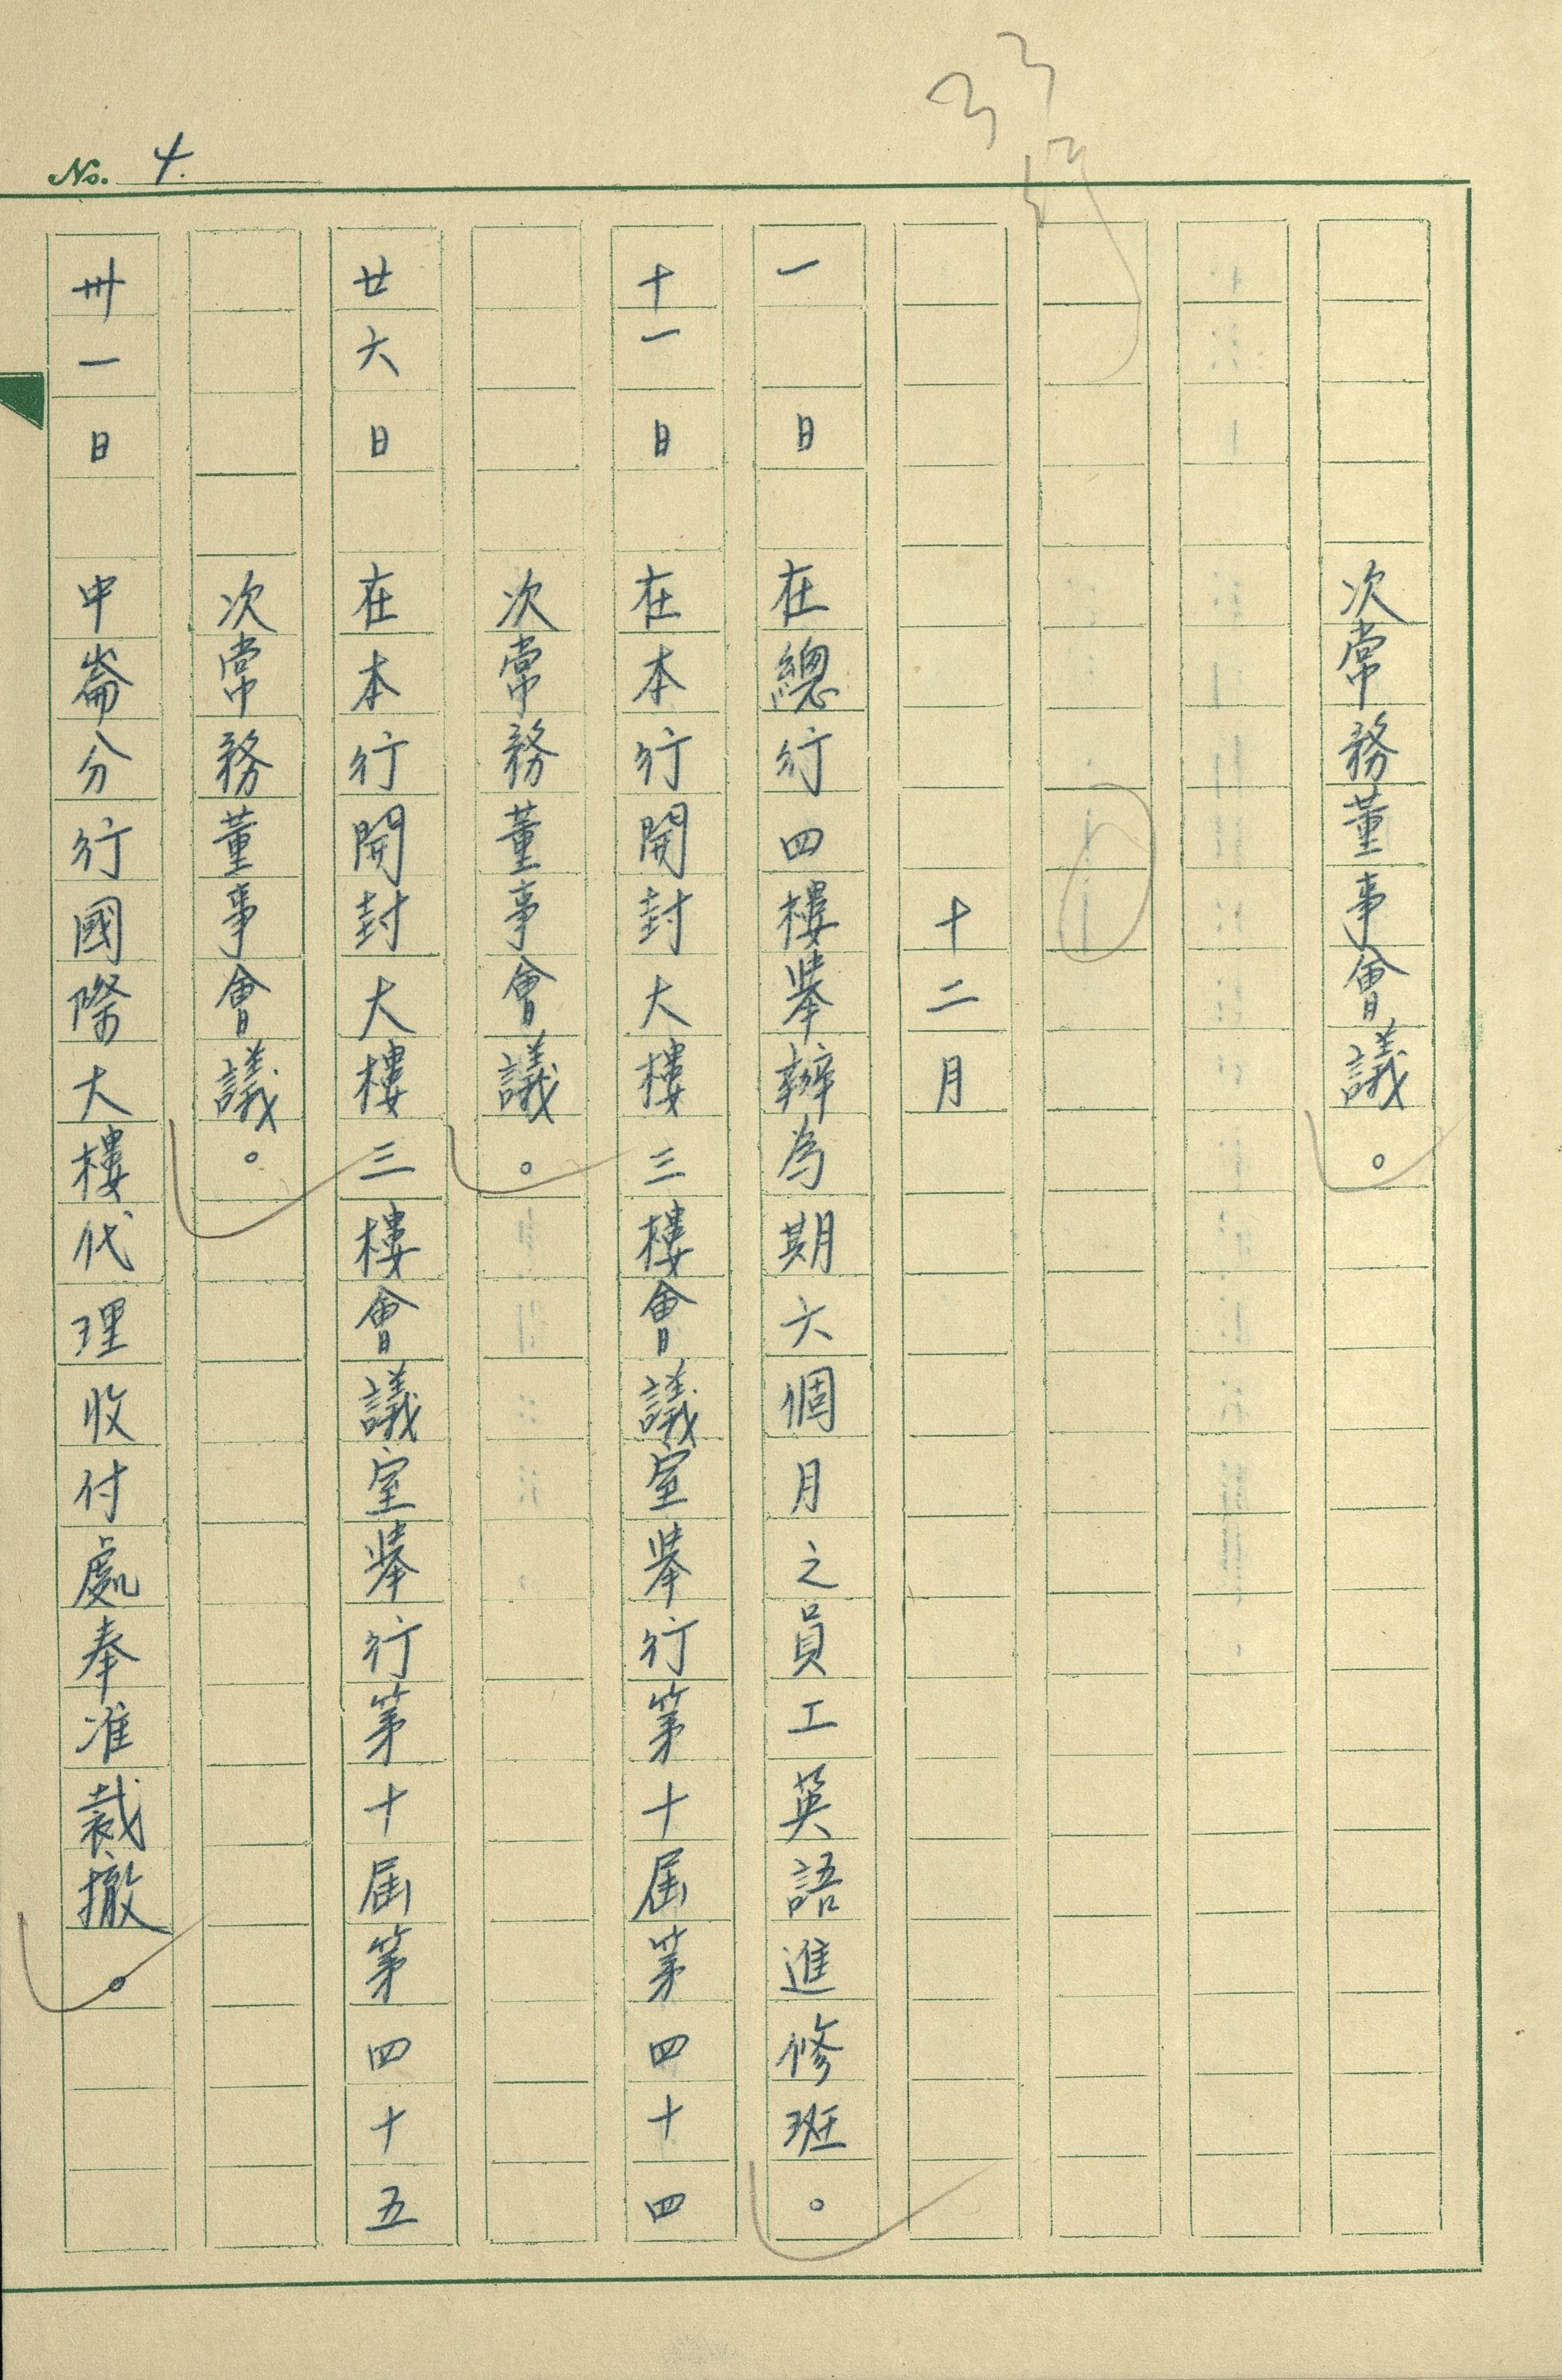 No. 4.
次常務董事會議。
十二月
一日 在總行四樓舉辦為期六個月之員工英語進修班。
十一日 在本行開封大樓三樓會議室舉行第十屆第四十四
次常務董事會議。
廿六日 在本行開封大樓三樓會議室舉行第十屆第四十五
次常務董事會議。
卅一日 中崙分行國際大樓代理收付處奉准裁撤。